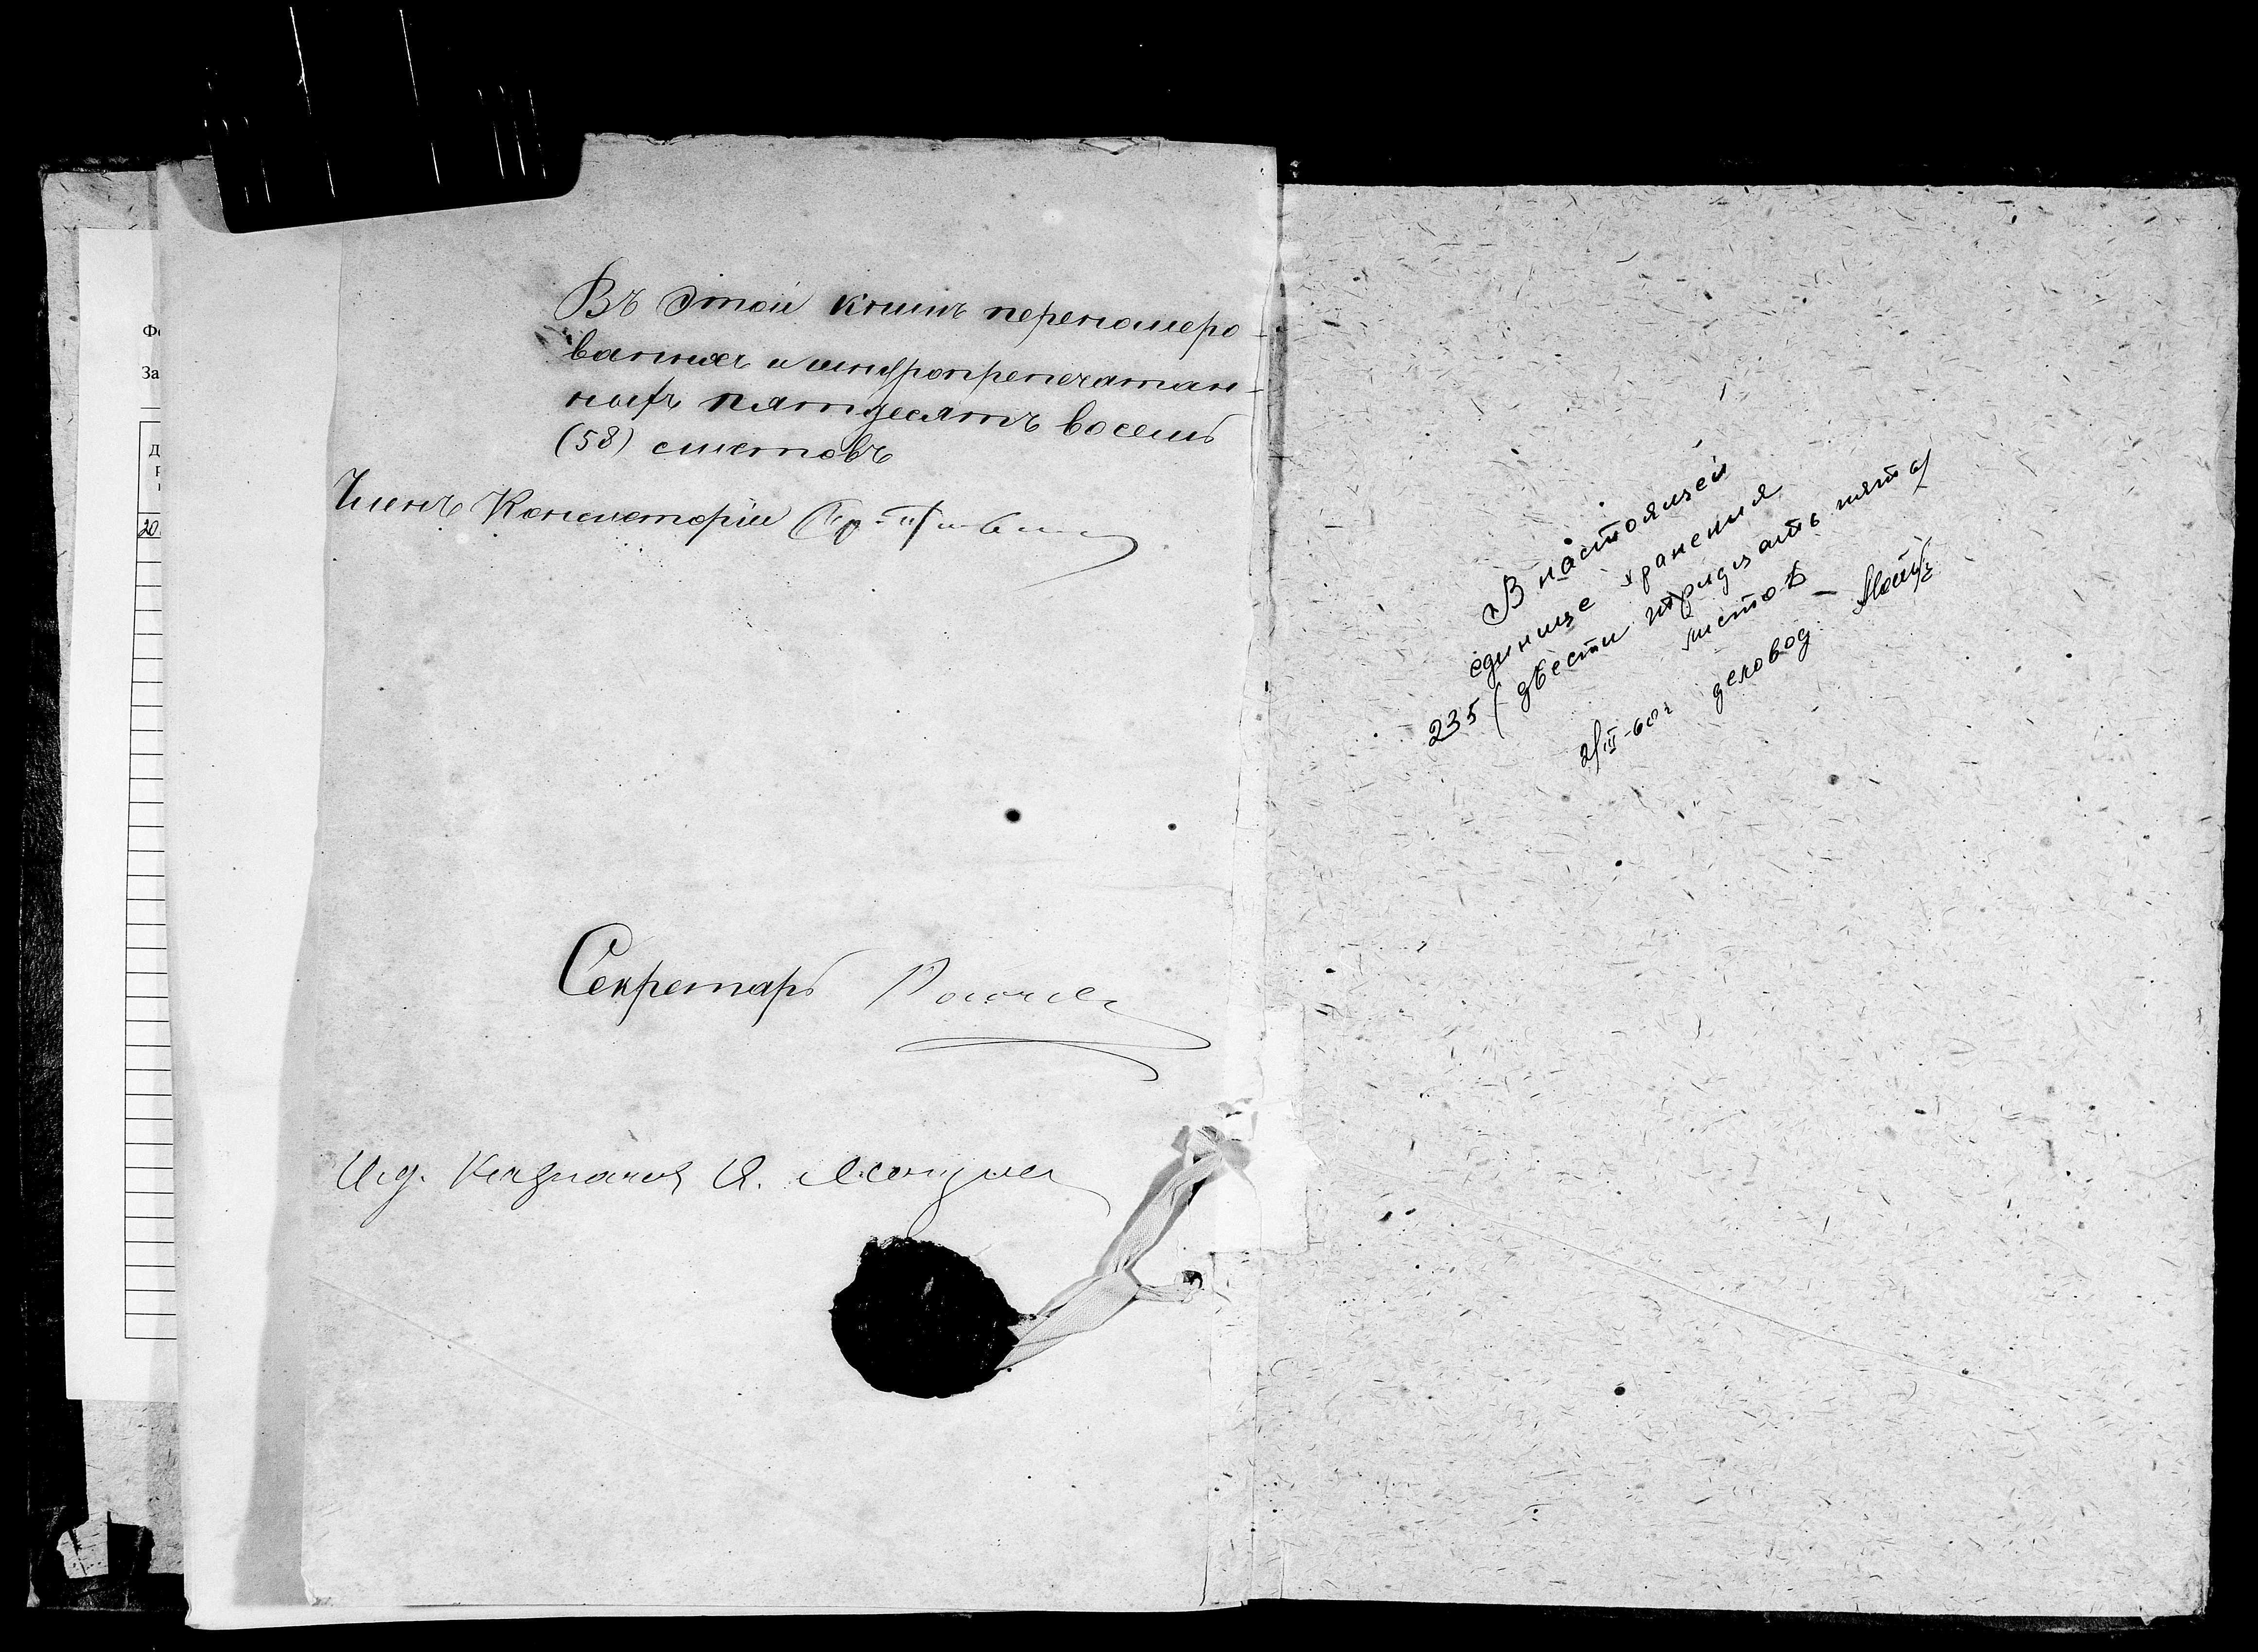 Въ этой книгѣ переномеро-
ванныхъ и шнуропрепечатан-
ныхъ пятдесятъ восемь
(58) листовъ
Членъ Консисторіи
Секретарь
И.д. Казначея
Фо
За
Д
20
В настоящей
единице хранения
235 (двести тридцать пять)
листов
2/III-60г деловод